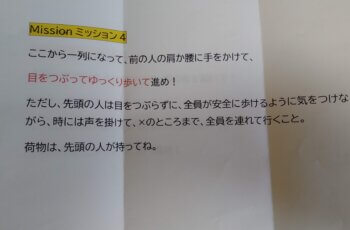 Mission ミッション 4
ここから一列になって、前の人の肩か腰に手をかけて、
目をつぶってゆっくり歩いて進め！
ただし、先頭の人は目をつぶらずに、全員が安全に歩けるように気をつけな
がら、時には声を掛けて、×のところまで、全員を連れて行くこと。
荷物は、先頭の人が持ってね。